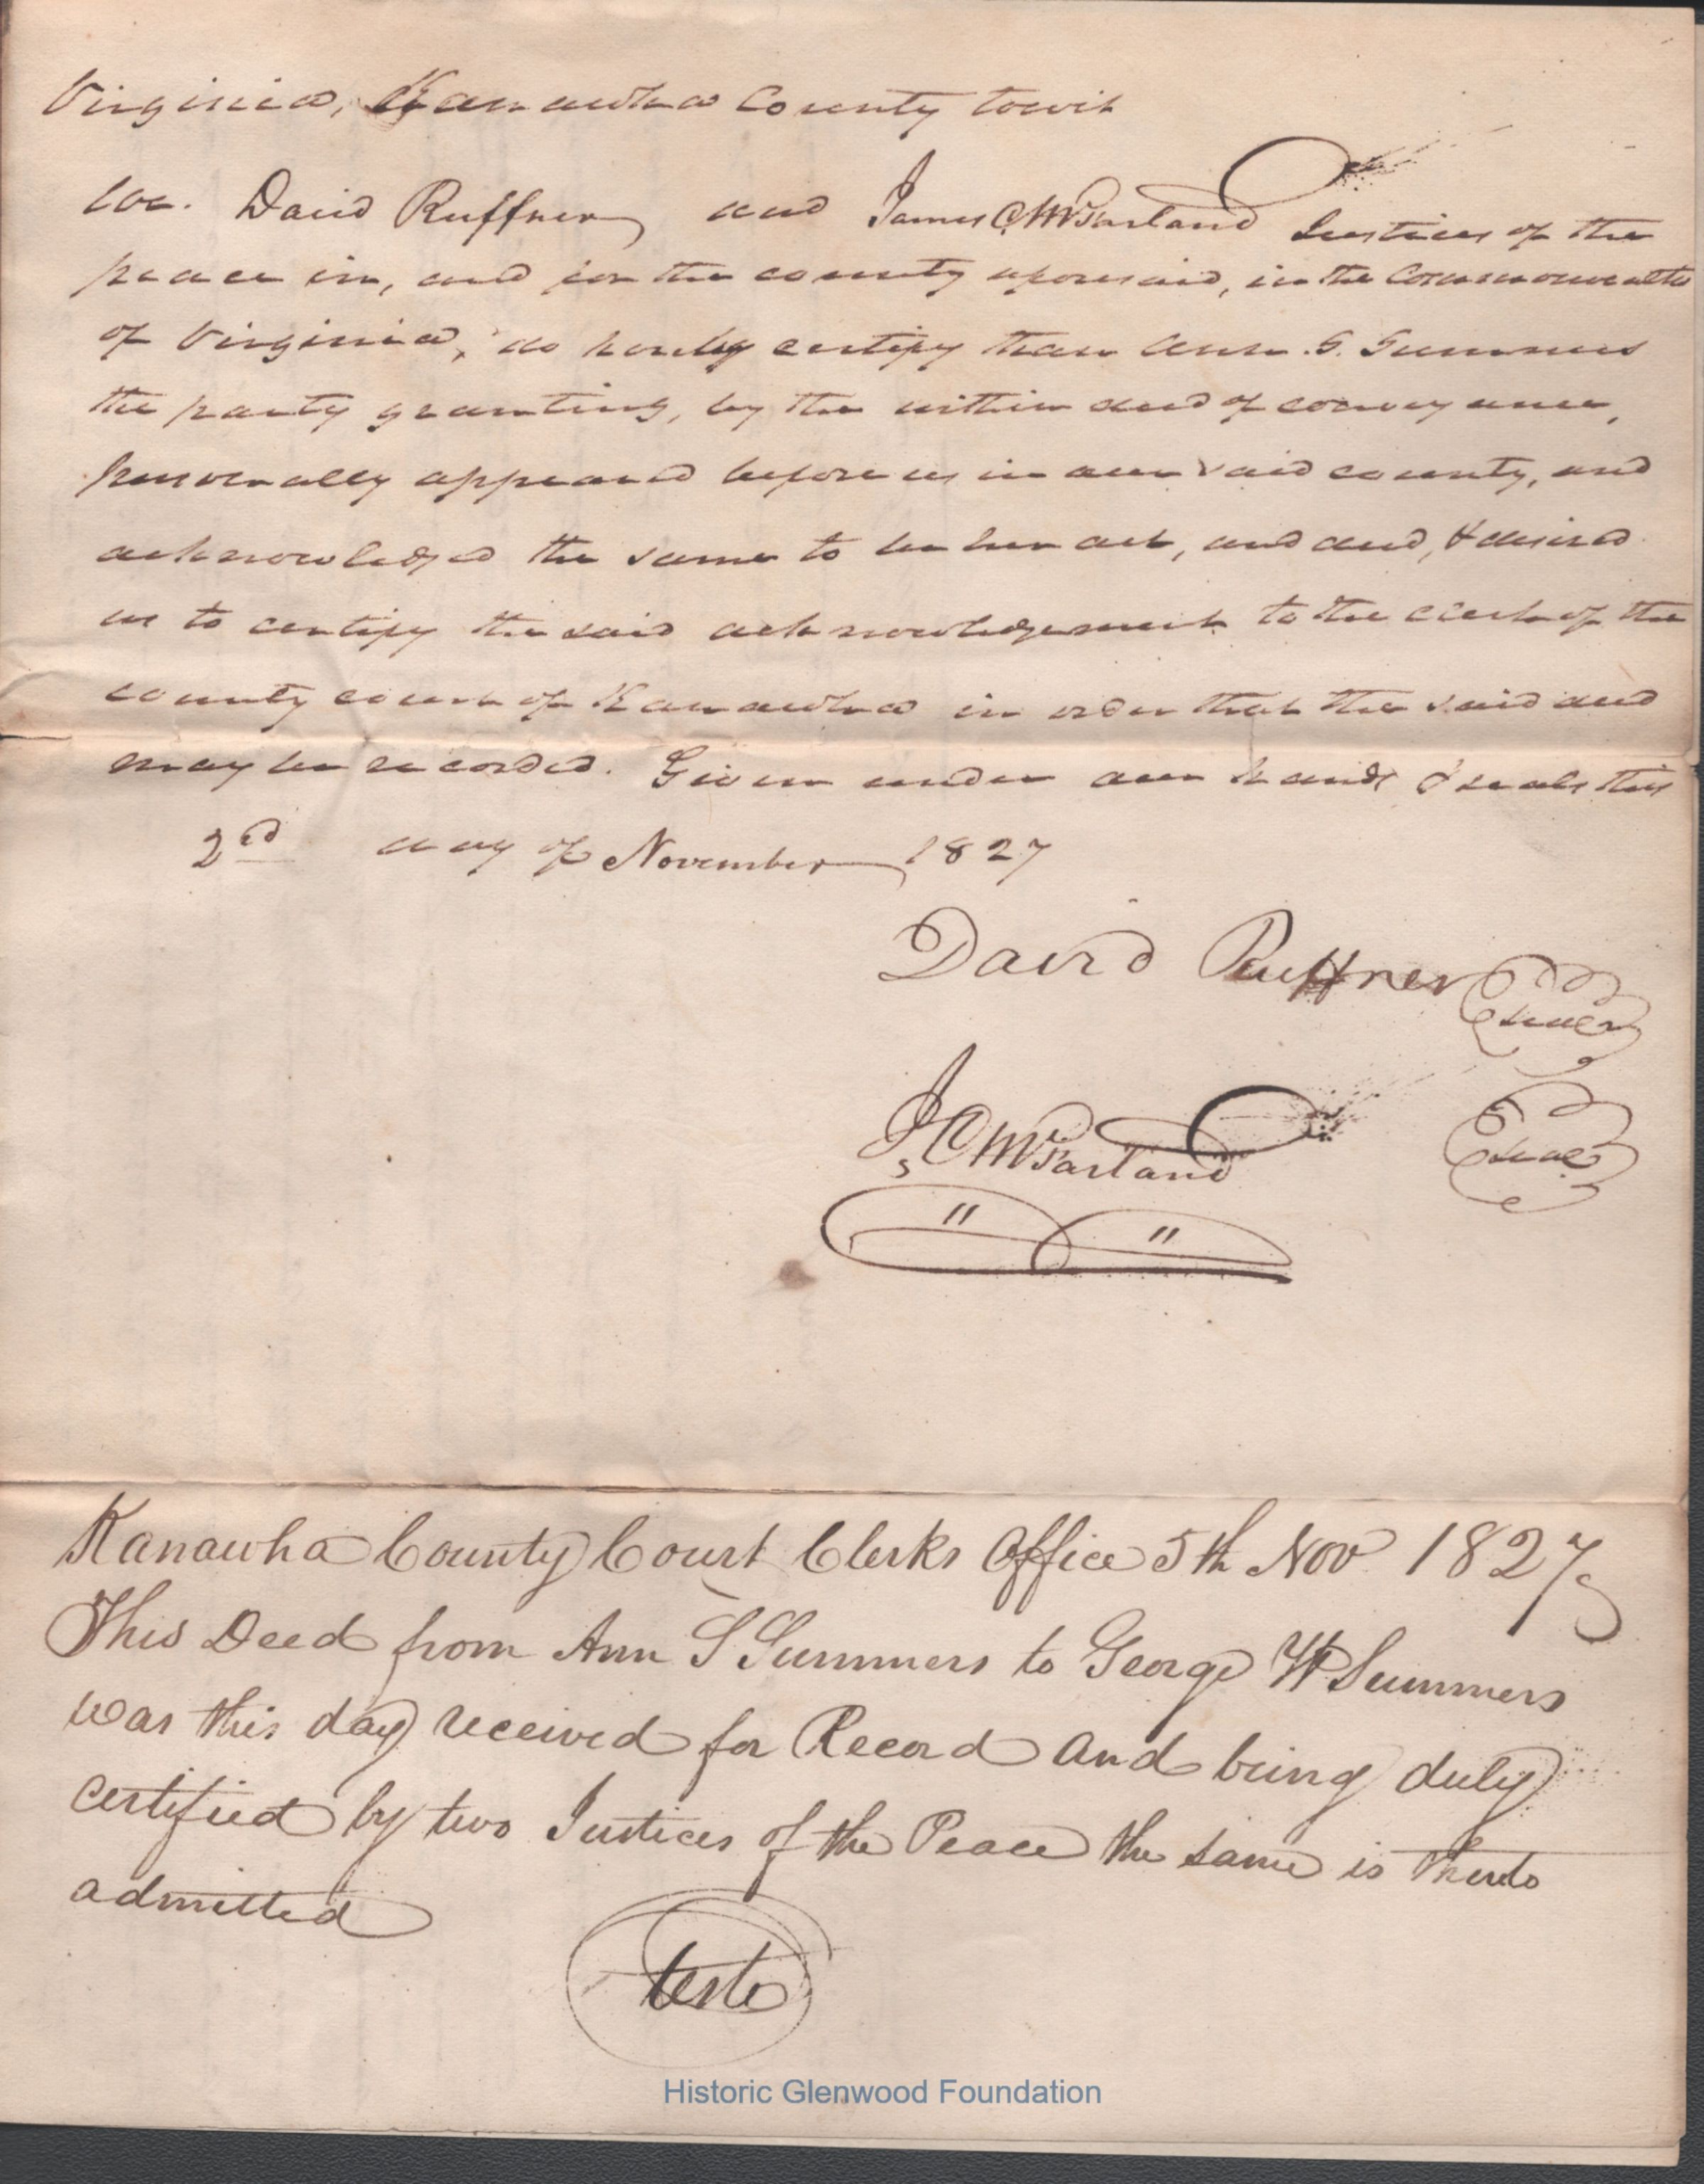 Virginia, Kanawha County towit
We. David Ruffner and James C McFarland Justices of the
peace in, and for the county aforesaid, in the Commonwealth
of Virginia, do hereby certify that Ann. S. Summers
the party granting, by the within deed of conveyance,
personally appeared before us in our said county, and
acknowledged the same to be her act, and deed, & desired
us to certify the said acknowledgement to the clerk of the
county court of Kanawha in order that the said deed
may be recorded. Given under our hands & seals this
2nd day of November 1827
David Ruffner seal
J C McFarland seal
Kanawha County Court Clerks Office 5th Nov 1827
This Deed from Ann S Summers to George W Summers
was this day received for Record and being duly
certified by two Justices of the Peace the same is thereto
admitted
teste
Historic Glenwood Foundation